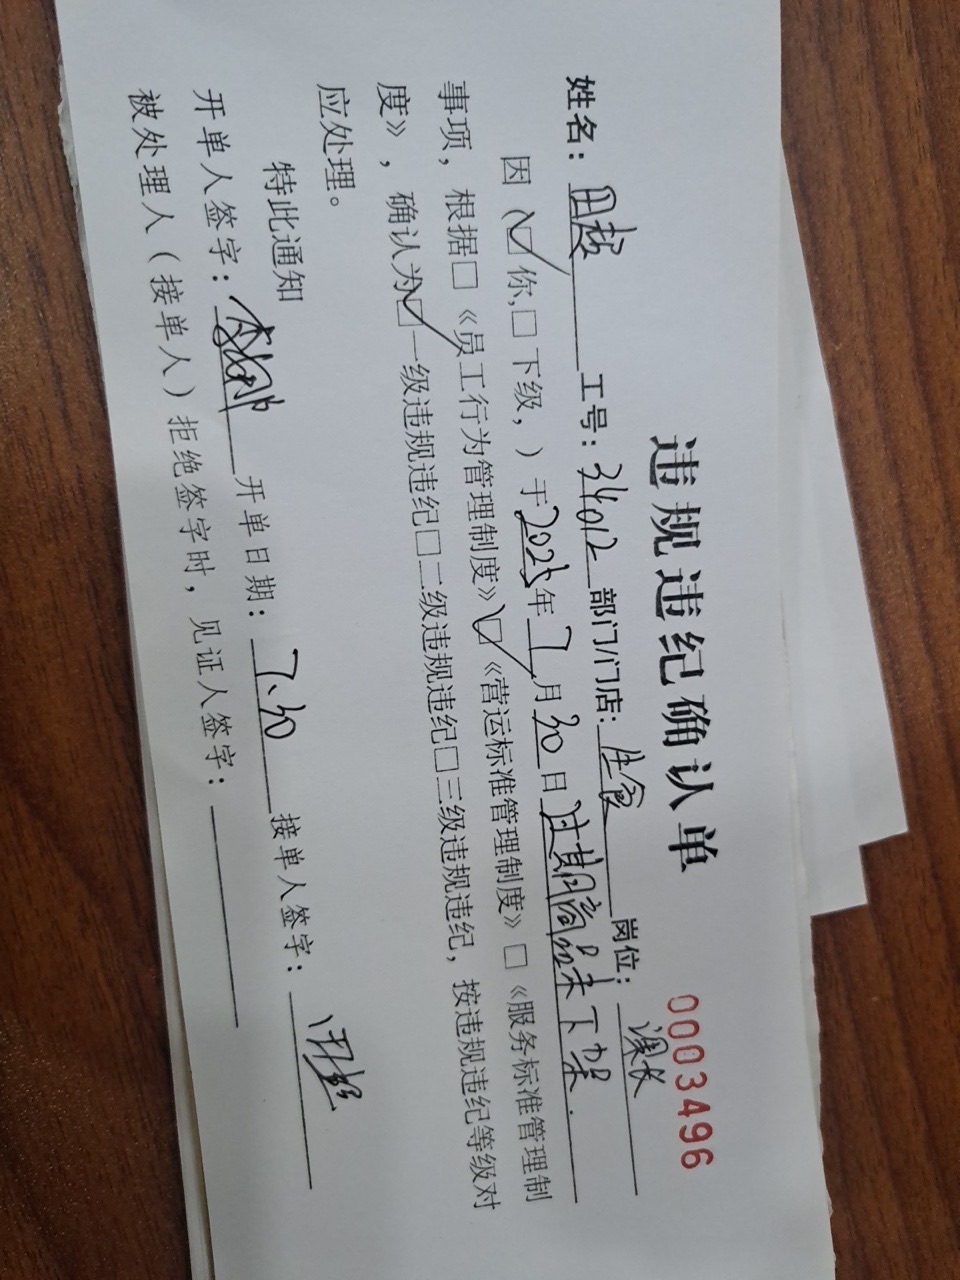 违规违纪确认单
0003496
姓名：田超 工号：34012 部门/门店：生食 岗位：课长
因（☑你,□下级，）于2025年7月30日过期商品未下架.
事项，根据□《员工行为管理制度》☑《营运标准管理制度》□《服务标准管理制
度》，确认为☑一级违规违纪□二级违规违纪□三级违规违纪，按违规违纪等级对
应处理。
特此通知
开单人签字： 开单日期：7.30 接单人签字：田超
被处理人（接单人）拒绝签字时，见证人签字：